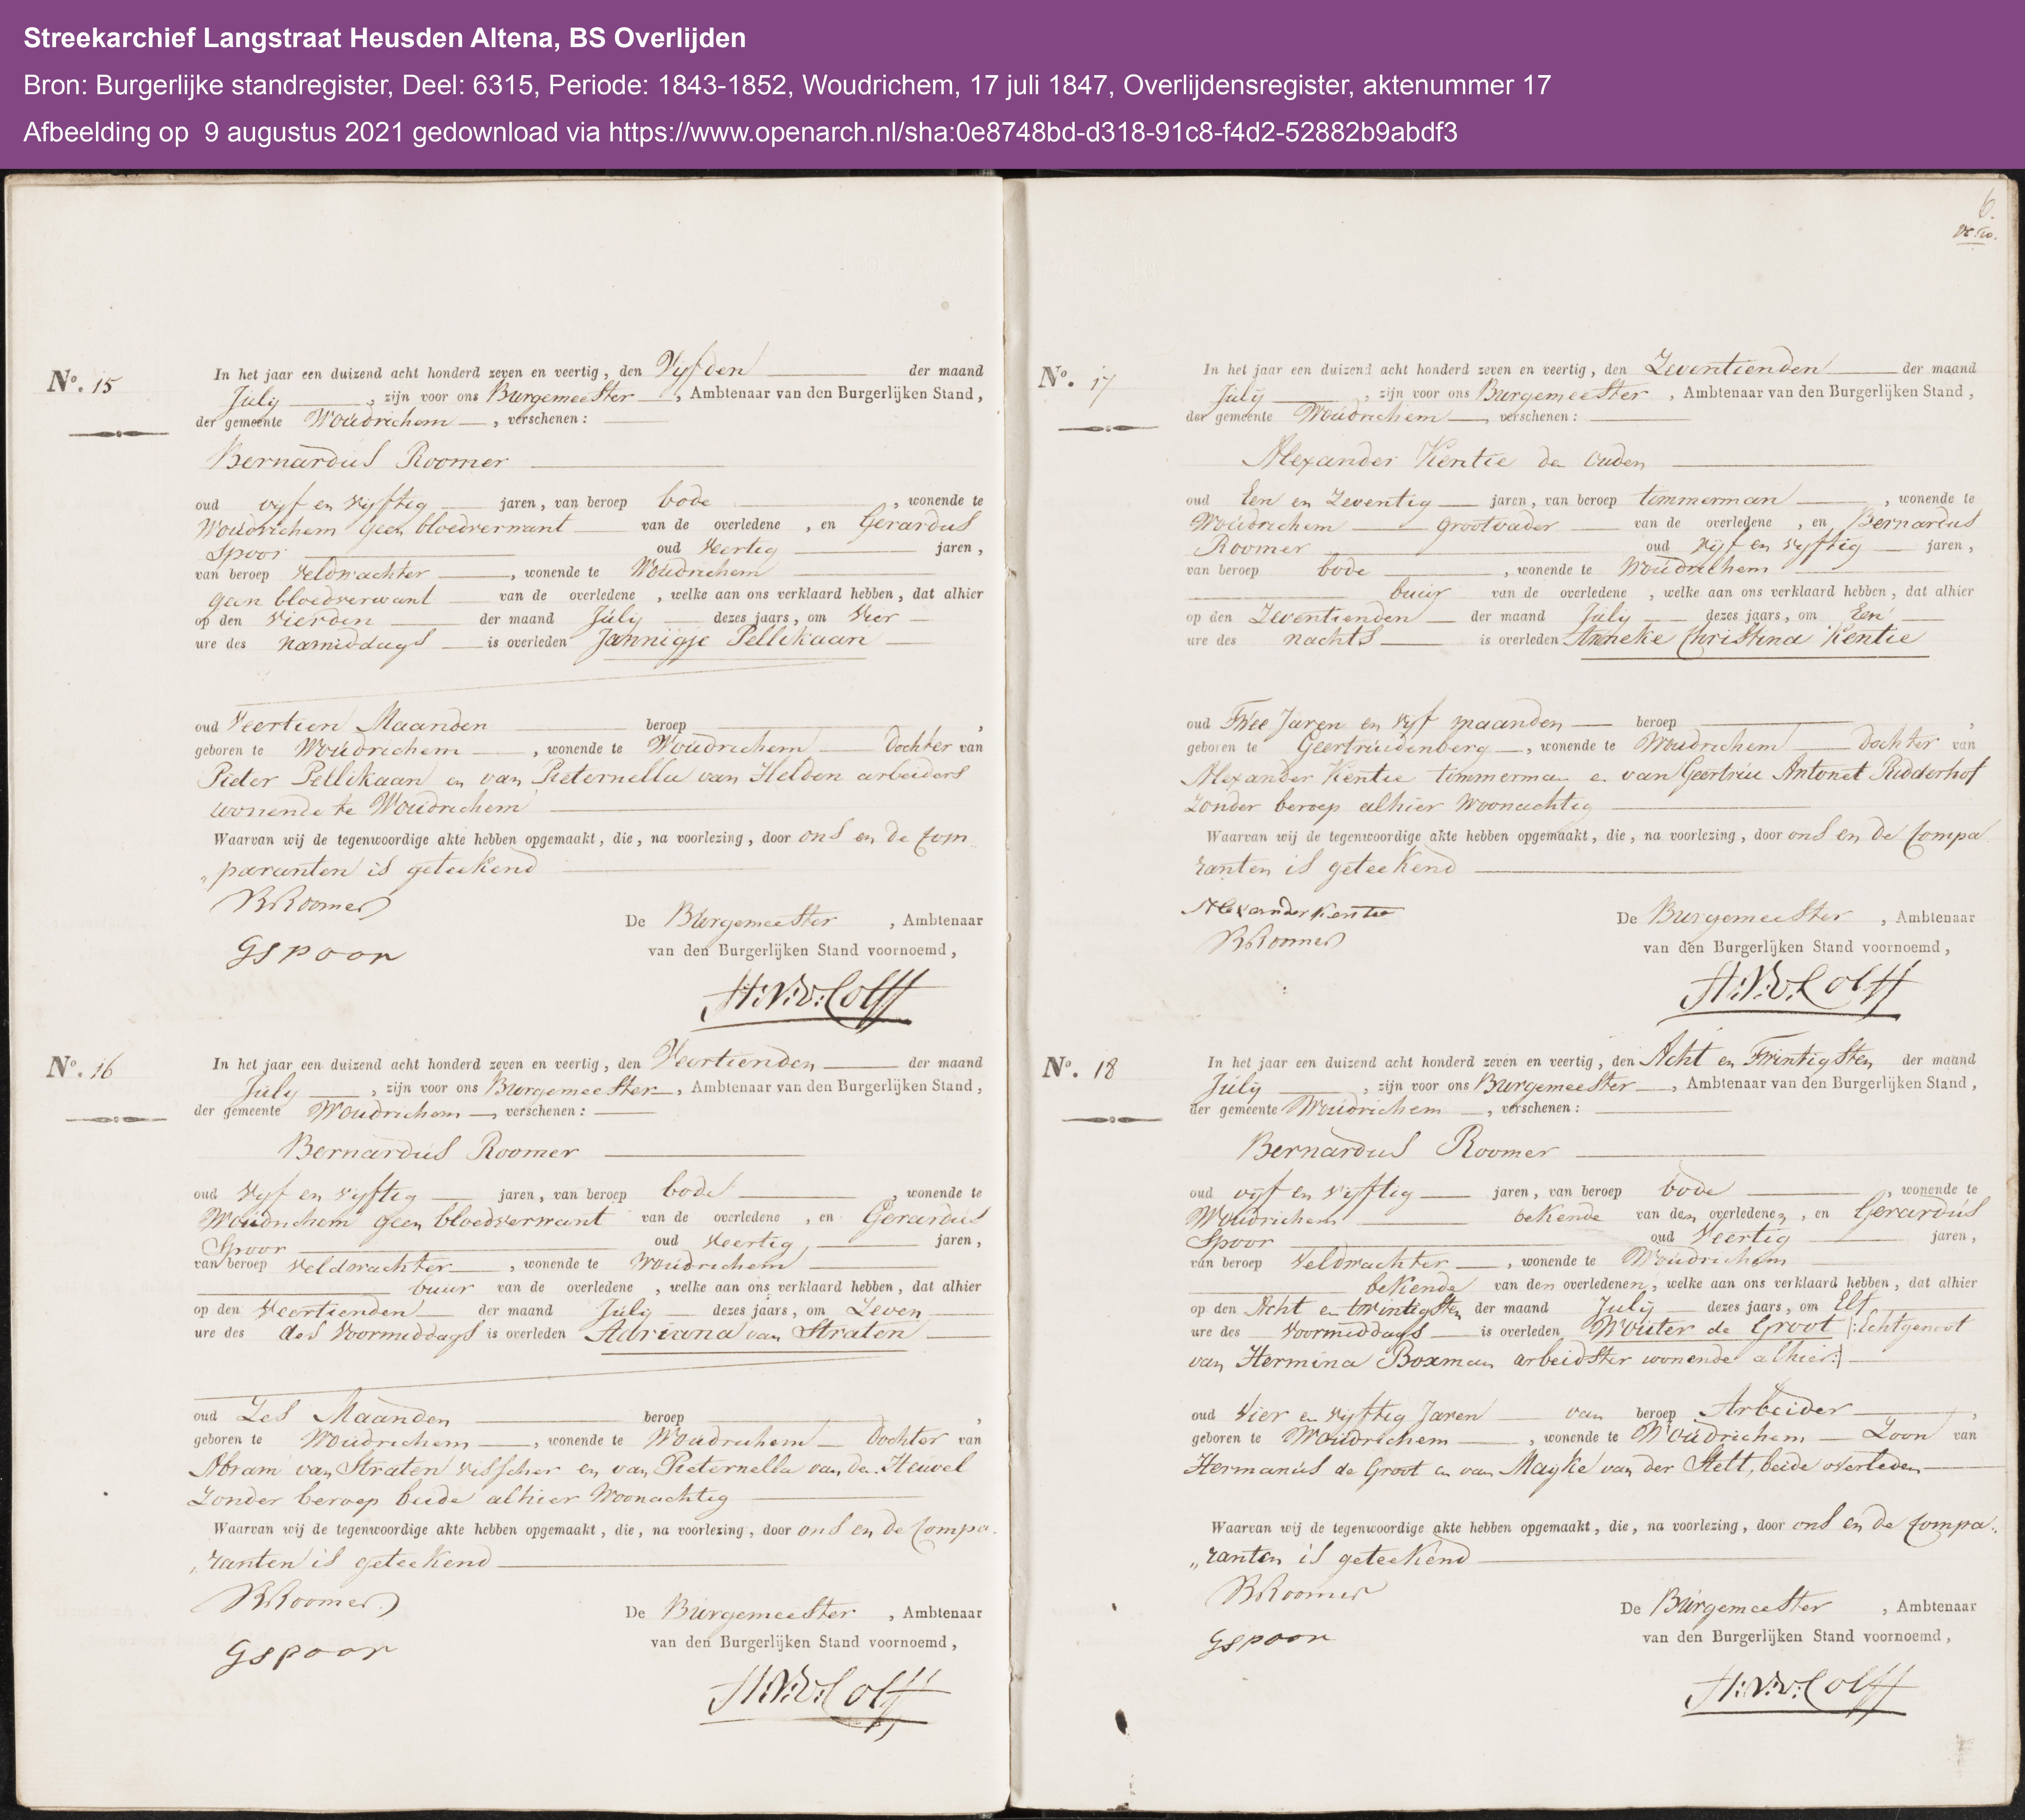 Streekarchief Langstraat Heusden Altena, BS Overlijden
Bron: Burgerlijke standregister, Deel: 6315, Periode: 1843-1852, Woudrichem, 17 juli 1847, Overlijdensregister, aktenummer 17
Afbeelding op 9 augustus 2021 gedownload via https://www.openarch.nl/sha:0e8748bd-d318-91c8-f4d2-52882b9abdf3
No. 15
In het jaar een duizend acht honderd zeven en veertig, den Vyfden der maand
July, zijn voor ons Burgemeester, Ambtenaar van den Burgerlijken Stand,
der gemeente Woudrichem, verschenen:
Bernardus Roomer
oud vyf en vyftig jaren, van beroep bode, wonende te
Woudrichem geen bloedverwant van de overledene, en Gerardus
Spoor oud Veertig jaren,
van beroep Veldwachter, wonende te Woudrichem
geen bloedverwant van de overledene, welke aan ons verklaard hebben, dat alhier
op den Vierden der maand July dezes jaars, om Vier
ure des namiddags is overleden Jannigje Pellikaan
oud Veertien Maanden beroep ,
geboren te Woudrichem, wonende te Woudrichem Dochter van
Pieter Pellikaan en van Pieternella van Helden arbeiders
wonende te Woudrichem
Waarvan wij de tegenwoordige akte hebben opgemaakt, die, na voorlezing, door ons en de Com
„paranten is geteekend
BRoomer
De Burgemeester, Ambtenaar
GSpoor
van den Burgerlijken Stand voornoemd,
H:N:v:Colff
No. 16
In het jaar een duizend acht honderd zeven en veertig, den Veertienden der maand
July, zijn voor ons Burgemeester, Ambtenaar van den Burgerlijken Stand,
der gemeente Woudrichem, verschenen:
Bernardus Roomer
oud Vyf en vyftig jaren, van beroep bode, wonende te
Woudrichem geen bloedverwant van de overledene, en Gerardus
Spoor oud Veertig jaren,
van beroep Veldwachter, wonende te Woudrichem
buur van de overledene, welke aan ons verklaard hebben, dat alhier
op den Veertienden der maand July dezes jaars, om Zeven
ure des des Voormiddags is overleden Adriana van Straten
oud Zes Maanden beroep ,
geboren te Woudrichem, wonende te Woudrichem Dochter van
Abram van Straten Visscher en van Pieternella van den Heuvel
Zonder beroep beide alhier Woonachtig
Waarvan wij de tegenwoordige akte hebben opgemaakt, die, na voorlezing, door ons en de Compa
„ranten is geteekend
BRoomer
De Burgemeester, Ambtenaar
GSpoor
van den Burgerlijken Stand voornoemd,
H:N:v:Colff
6.
No. 17
In het jaar een duizend acht honderd zeven en veertig, den Zeventienden der maand
July, zijn voor ons Burgemeester, Ambtenaar van den Burgerlijken Stand,
der gemeente Woudrichem, verschenen:
Alexander Kentie de Ouden
oud Een en Zeventig jaren, van beroep timmerman, wonende te
Woudrichem grootvader van de overledene, en Bernardus
Roomer oud Vyf en vyftig jaren,
van beroep bode, wonende te Woudrichem
buur van de overledene, welke aan ons verklaard hebben, dat alhier
op den Zeventienden der maand July dezes jaars, om Een
ure des nachts is overleden Anneke Christina Kentie
oud Twee Jaren en Vyf maanden beroep ,
geboren te Geertruidenberg, wonende te Woudrichem dochter van
Alexander Kentie timmerman en van Geertrui Antonet Ridderhof
Zonder beroep alhier Woonachtig
Waarvan wij de tegenwoordige akte hebben opgemaakt, die, na voorlezing, door ons en de Compa
ranten is geteekend
Alexander Kentie
De Burgemeester, Ambtenaar
BRoomer
van den Burgerlijken Stand voornoemd,
H:N:v:Colff
No. 18
In het jaar een duizend acht honderd zeven en veertig, den Acht en Twintigsten der maand
July, zijn voor ons Burgemeester, Ambtenaar van den Burgerlijken Stand,
der gemeente Woudrichem, verschenen:
Bernardus Roomer
oud vyf en vyftig jaren, van beroep bode, wonende te
Woudrichem bekende van den overledenen, en Gerardus
Spoor oud Veertig jaren,
van beroep Veldwachter, wonende te Woudrichem
bekende van den overledenen, welke aan ons verklaard hebben, dat alhier
op den Acht en twintigsten der maand July dezes jaars, om Elf
ure des Voormiddags is overleden Wouter de Groot |: Echtgenoot
van Hermina Boxman arbeidster wonende alhier:|
oud Vier en vyftig Jaren van beroep Arbeider,
geboren te Woudrichem, wonende te Woudrichem Zoon van
Hermanus de Groot en van Mayke van der Stelt, beide overleden
Waarvan wij de tegenwoordige akte hebben opgemaakt, die, na voorlezing, door ons en de Compa
„ranten is geteekend
BRoomer
De Burgemeester, Ambtenaar
GSpoor
van den Burgerlijken Stand voornoemd,
H:N:v:Colff